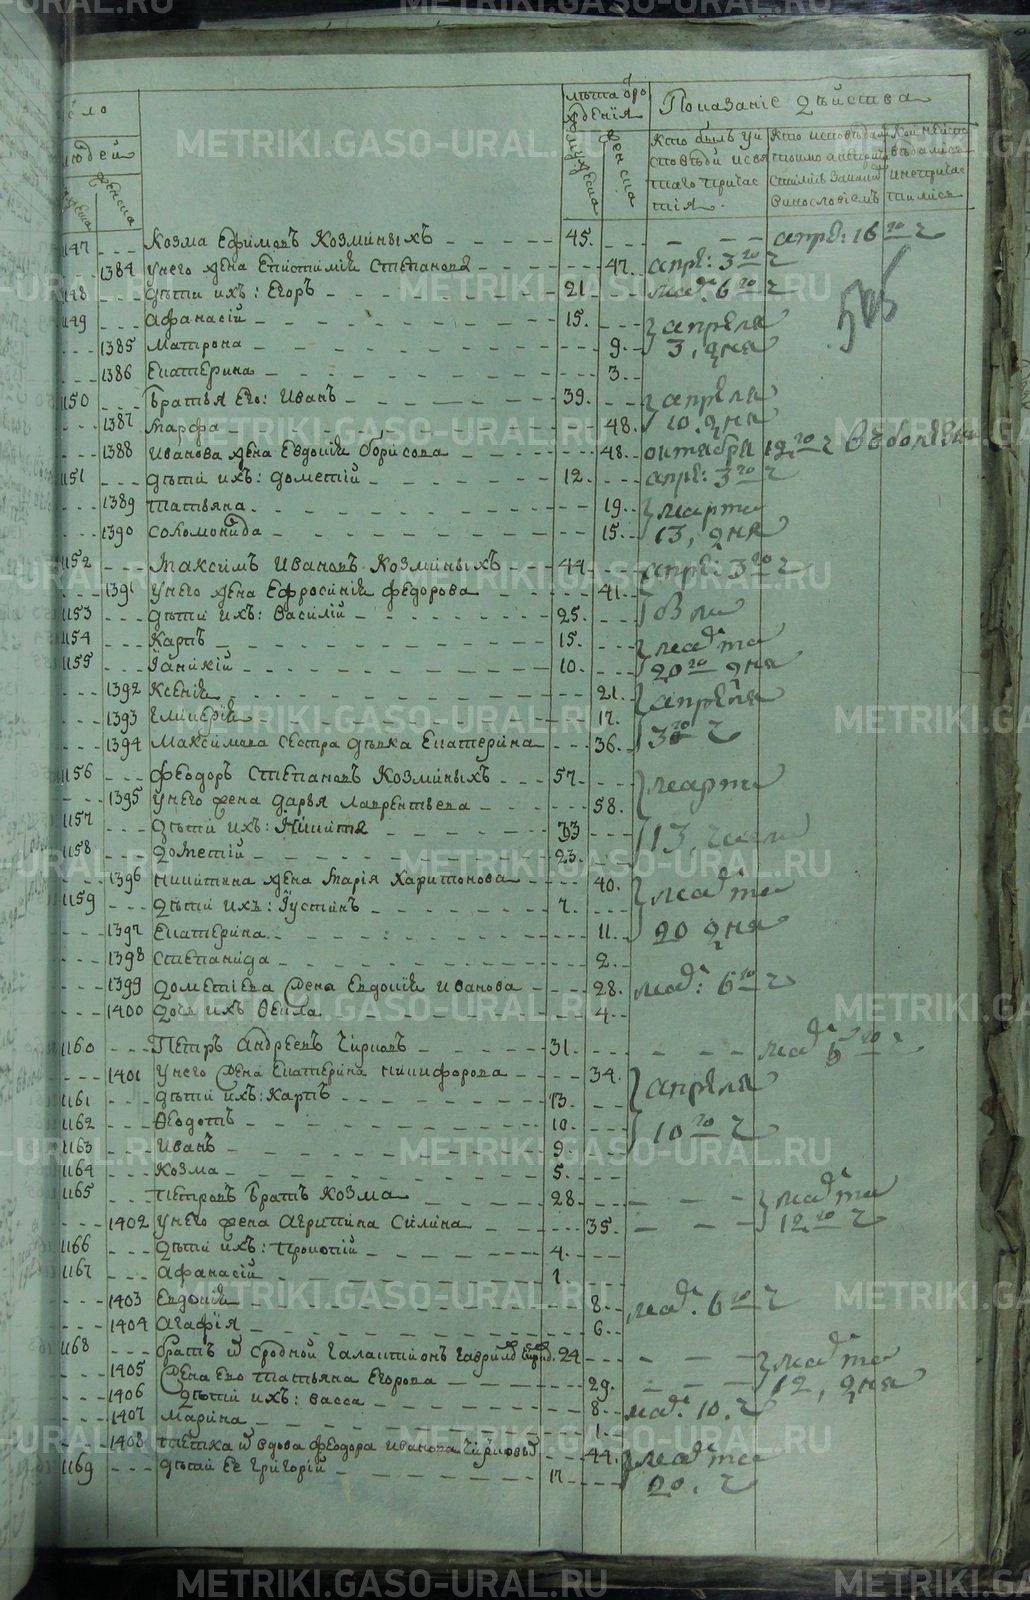 сло
людей
мужеска
женска
Лѣта от рождения
мужеска
женска
Показаніе Дѣйства
Кто былъ у исповѣди и святаго причастія
Кто исповѣдался токмо а
не причастились
1147 Козма Ефимовъ Козминыхъ 45. апрѣ: 16 го ч
1384 У него жена Епистимія Степанова 47. апрѣ: 3 го ч
1148 Дѣти ихъ: Егоръ 21. мар: 6 го ч
1149 Афанасій 15. апрѣля
1385 Матрона 9. 3, дня
1386 Екатерина 3.
1150 Братья его: Иванъ 39. апрѣля
1387 Марфа 48. 10. дня
1388 Иванова жена Евдокія Борисова 48. октября 12 го ч
1151 Дѣти ихъ: Дометій 12. апрѣ: 3 го ч
1389 Татьяна 19. марта
1390 Соломонида 15. 13, дня
1152 Максимъ Ивановъ Козминыхъ 44. апрѣ: 3 го ч
1391 У него жена Ефросинія Федорова 41.
1153 Дѣти ихъ: Василій 25.
1154 Карпъ 15. марта
1155 Іаникій 10. 20 го дня
1392 Ксенія 21. апрѣля
1393 Гликерія 17. 3 го ч
1394 Максимова сестра дѣвка Екатерина 36.
1156 Феодоръ Степановъ Козминыхъ 57. марта
1395 У него жена Дарья Лаврентьева 58.
1157 Дѣти ихъ: Никита 33 13, числа
1158 Дометій 23.
1396 Никитина жена Марія Харитонова 40. марта
1159 Дѣти ихъ: Іустинъ 7.
1397 Екатерина 11. 20 дня
1398 Степанида 2.
1399 Дометіева жена Евдокія Иванова 28. мар: 6 го ч
1400 Дочь ихъ Фекла 4.
1160 Петръ Андреевъ Чирковъ 31. мар 6 го ч
1401 У него жена Екатерина Никифорова 34. апрѣля
1161 Дѣти ихъ: Карпъ 13.
1162 Феодотъ 10. 10 го ч
1163 Иванъ 9.
1164 Козма 5.
1165 Петровъ братъ Козма 28. марта
1402 У него жена Агрипина Силина 35. 12 го ч
1166 Дѣти ихъ: Прокопій 4.
1167 Афанасій 1.
1403 Евдокія 8. мар. 6 го ч
1404 Агафія 6.
1168 братъ Сродной Галактіонъ Гаврилов 24 марта
1405 Жена ево Татьяна Егорова 29. 12, дня
1406 Дѣти ихъ: Васса 8. мар. 10. ч
1407 Марина 1.
1408 тіотка вдова Феодора Иванова 44. марта
1169 Дѣти ее Григорій 17 20. ч